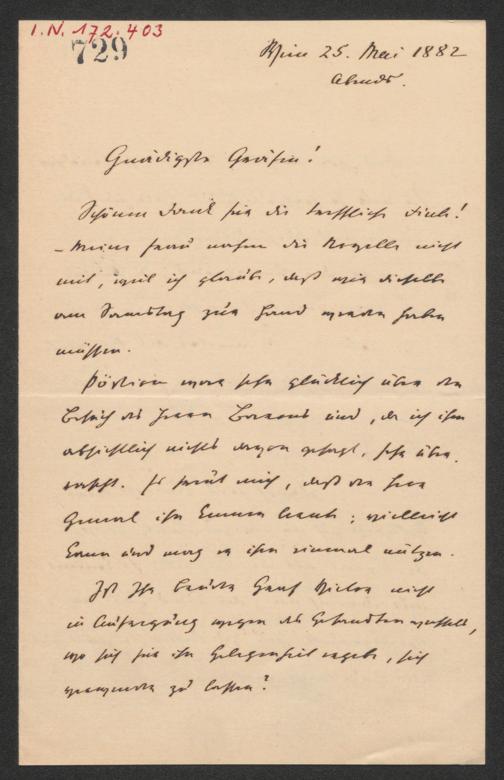 I. N. 172.403
729
Wien 25. Mai 1882
Abends.
Gnädigste Gräfin!
Schönen Dank für die treffliche Tinte!
– Meine Frau nahm die Novelle nicht
mit, weil ich glaubte, daß wir dieselbe
am Samstag zur Hand werden haben
müssen.
war sehr glücklich über den
Besuch des Herrn Barons und, da ich ihm
absichtlich nichts davon gesagt, sehr über-
rascht. Es freut mich, daß der Herr
General ihn kennen lernte; vielleicht
kann und mag er ihm einmal nützen.
Ist Ihr Bruder Graf Victor nicht
in wegen des Gesandten
wo sich für ihn Gelegenheit ergebe, sich
zu lassen?